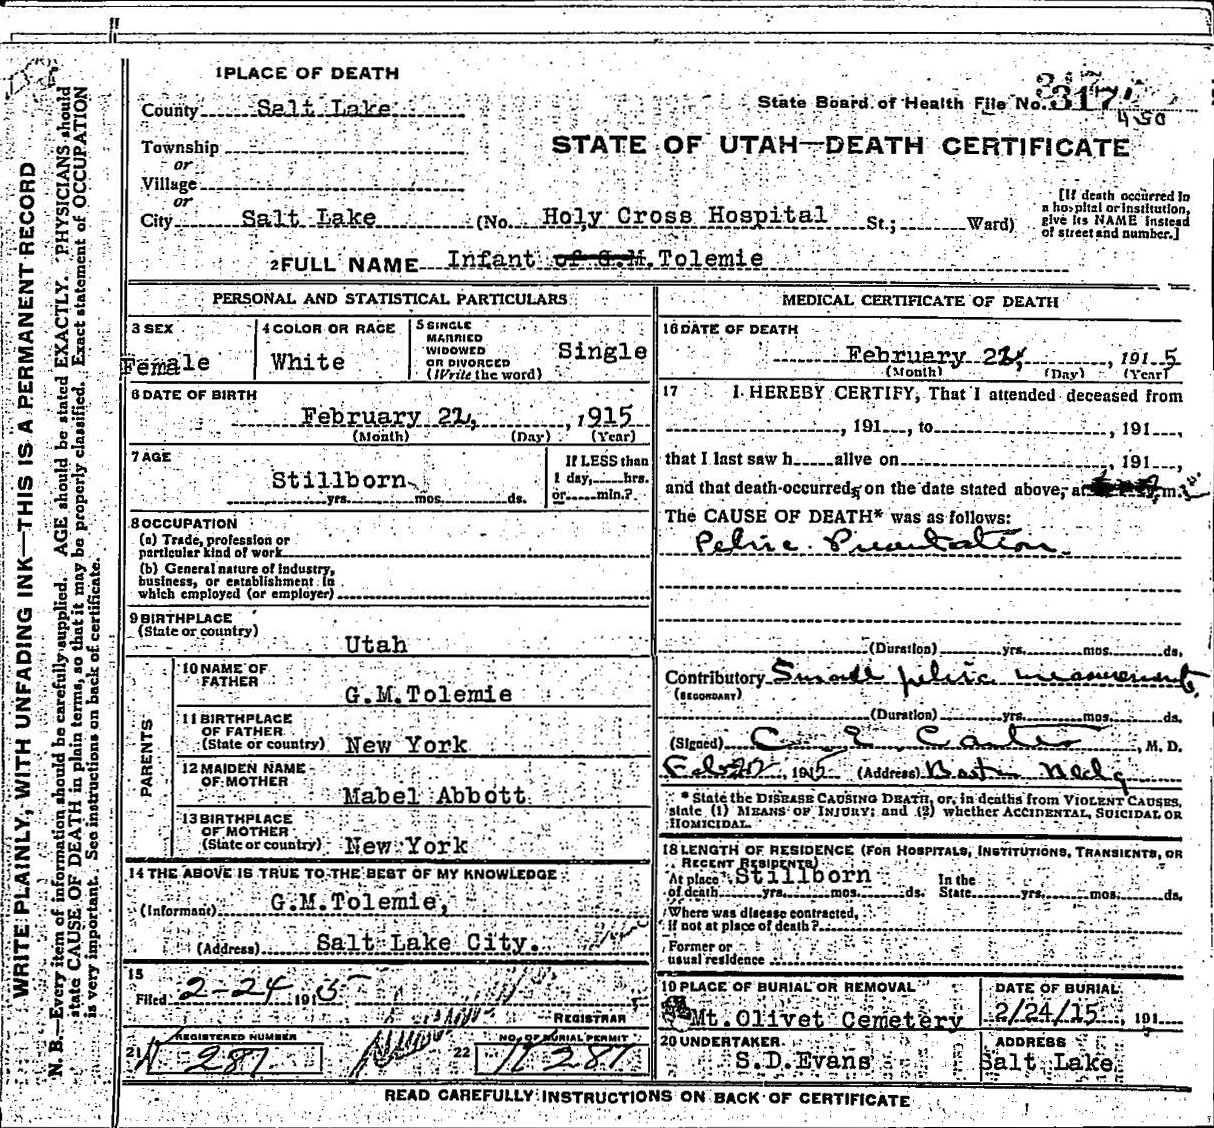 1 PLACE OF DEATH
County Salt Lake
State Board of Health File No. 317
450
Township
or
STATE OF UTAH—DEATH CERTIFICATE
Village
or
City Salt Lake (No. Holy Cross Hospital St.; Ward)
[If death occurred in
a hospital or institution,
give its NAME instead
of street and number.]
2 FULL NAME Infant of G.M. Tolemie
PERSONAL AND STATISTICAL PARTICULARS
3 SEX
Female
4 COLOR OR RACE
White
5 SINGLE
MARRIED
WIDOWED
OR DIVORCED
(Write the word)
Single
6 DATE OF BIRTH
February 22, , 1915
(Month) (Day) (Year)
7 AGE
Stillborn
yrs. mos. ds.
If LESS than
1 day, hrs.
or min.?
8 OCCUPATION
(a) Trade, profession or
particular kind of work
(b) General nature of industry,
business, or establishment in
which employed (or employer)
9 BIRTHPLACE
(State or country)
Utah
PARENTS
10 NAME OF
FATHER
G.M.Tolemie
11 BIRTHPLACE
OF FATHER
(State or country) New York
12 MAIDEN NAME
OF MOTHER
Mabel Abbott
13 BIRTHPLACE
OF MOTHER
(State or country) New York
14 THE ABOVE IS TRUE TO THE BEST OF MY KNOWLEDGE
(Informant) G.M.Tolemie,
(Address) Salt Lake City.
15
Filed 2-24 1915
REGISTRAR
REGISTERED NUMBER
21 287
NO. OF BURIAL PERMIT
22 287
MEDICAL CERTIFICATE OF DEATH
16 DATE OF DEATH
February 22, , 1915
(Month) (Day) (Year)
17 I HEREBY CERTIFY, That I attended deceased from
, 191 , to , 191 ,
that I last saw h alive on , 191 ,
and that death occurred, on the date stated above, at m.
The CAUSE OF DEATH* was as follows:
Pelvic Presentation
(Duration) yrs. mos. ds.
Contributory Small pelvic measurements
(SECONDARY)
(Duration) yrs. mos. ds.
(Signed) C. E. Carter, M. D.
Feb 22 1915 (Address) Bldg
* State the DISEASE CAUSING DEATH, or, in deaths from VIOLENT CAUSES,
state (1) MEANS OF INJURY; and (2) whether ACCIDENTAL, SUICIDAL OR
HOMICIDAL.
18 LENGTH OF RESIDENCE (FOR HOSPITALS, INSTITUTIONS, TRANSIENTS, OR
RECENT RESIDENTS)
At place Stillborn In the
of death yrs. mos. ds. State yrs. mos. ds.
Where was disease contracted,
if not at place of death?
Former or
usual residence
19 PLACE OF BURIAL OR REMOVAL
Mt. Olivet Cemetery
DATE OF BURIAL
2/24/15 , 191
20 UNDERTAKER
S.D.Evans
ADDRESS
Salt Lake
READ CAREFULLY INSTRUCTIONS ON BACK OF CERTIFICATE
WRITE PLAINLY, WITH UNFADING INK—THIS IS A PERMANENT RECORD
N. B.—Every item of information should be carefully supplied. AGE should be stated EXACTLY. PHYSICIANS should
state CAUSE OF DEATH in plain terms, so that it may be properly classified. Exact statement of OCCUPATION
is very important. See instructions on back of certificate.